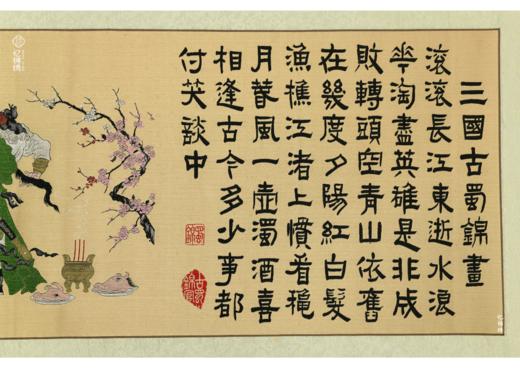 三國古蜀錦畫
滾滾長江東逝水浪
花淘盡英雄是非成
敗轉頭空青山依舊
在幾度夕陽紅白髮
漁樵江渚上慣看穐
月春風一壺濁酒喜
相逢古今多少事都
付笑談中